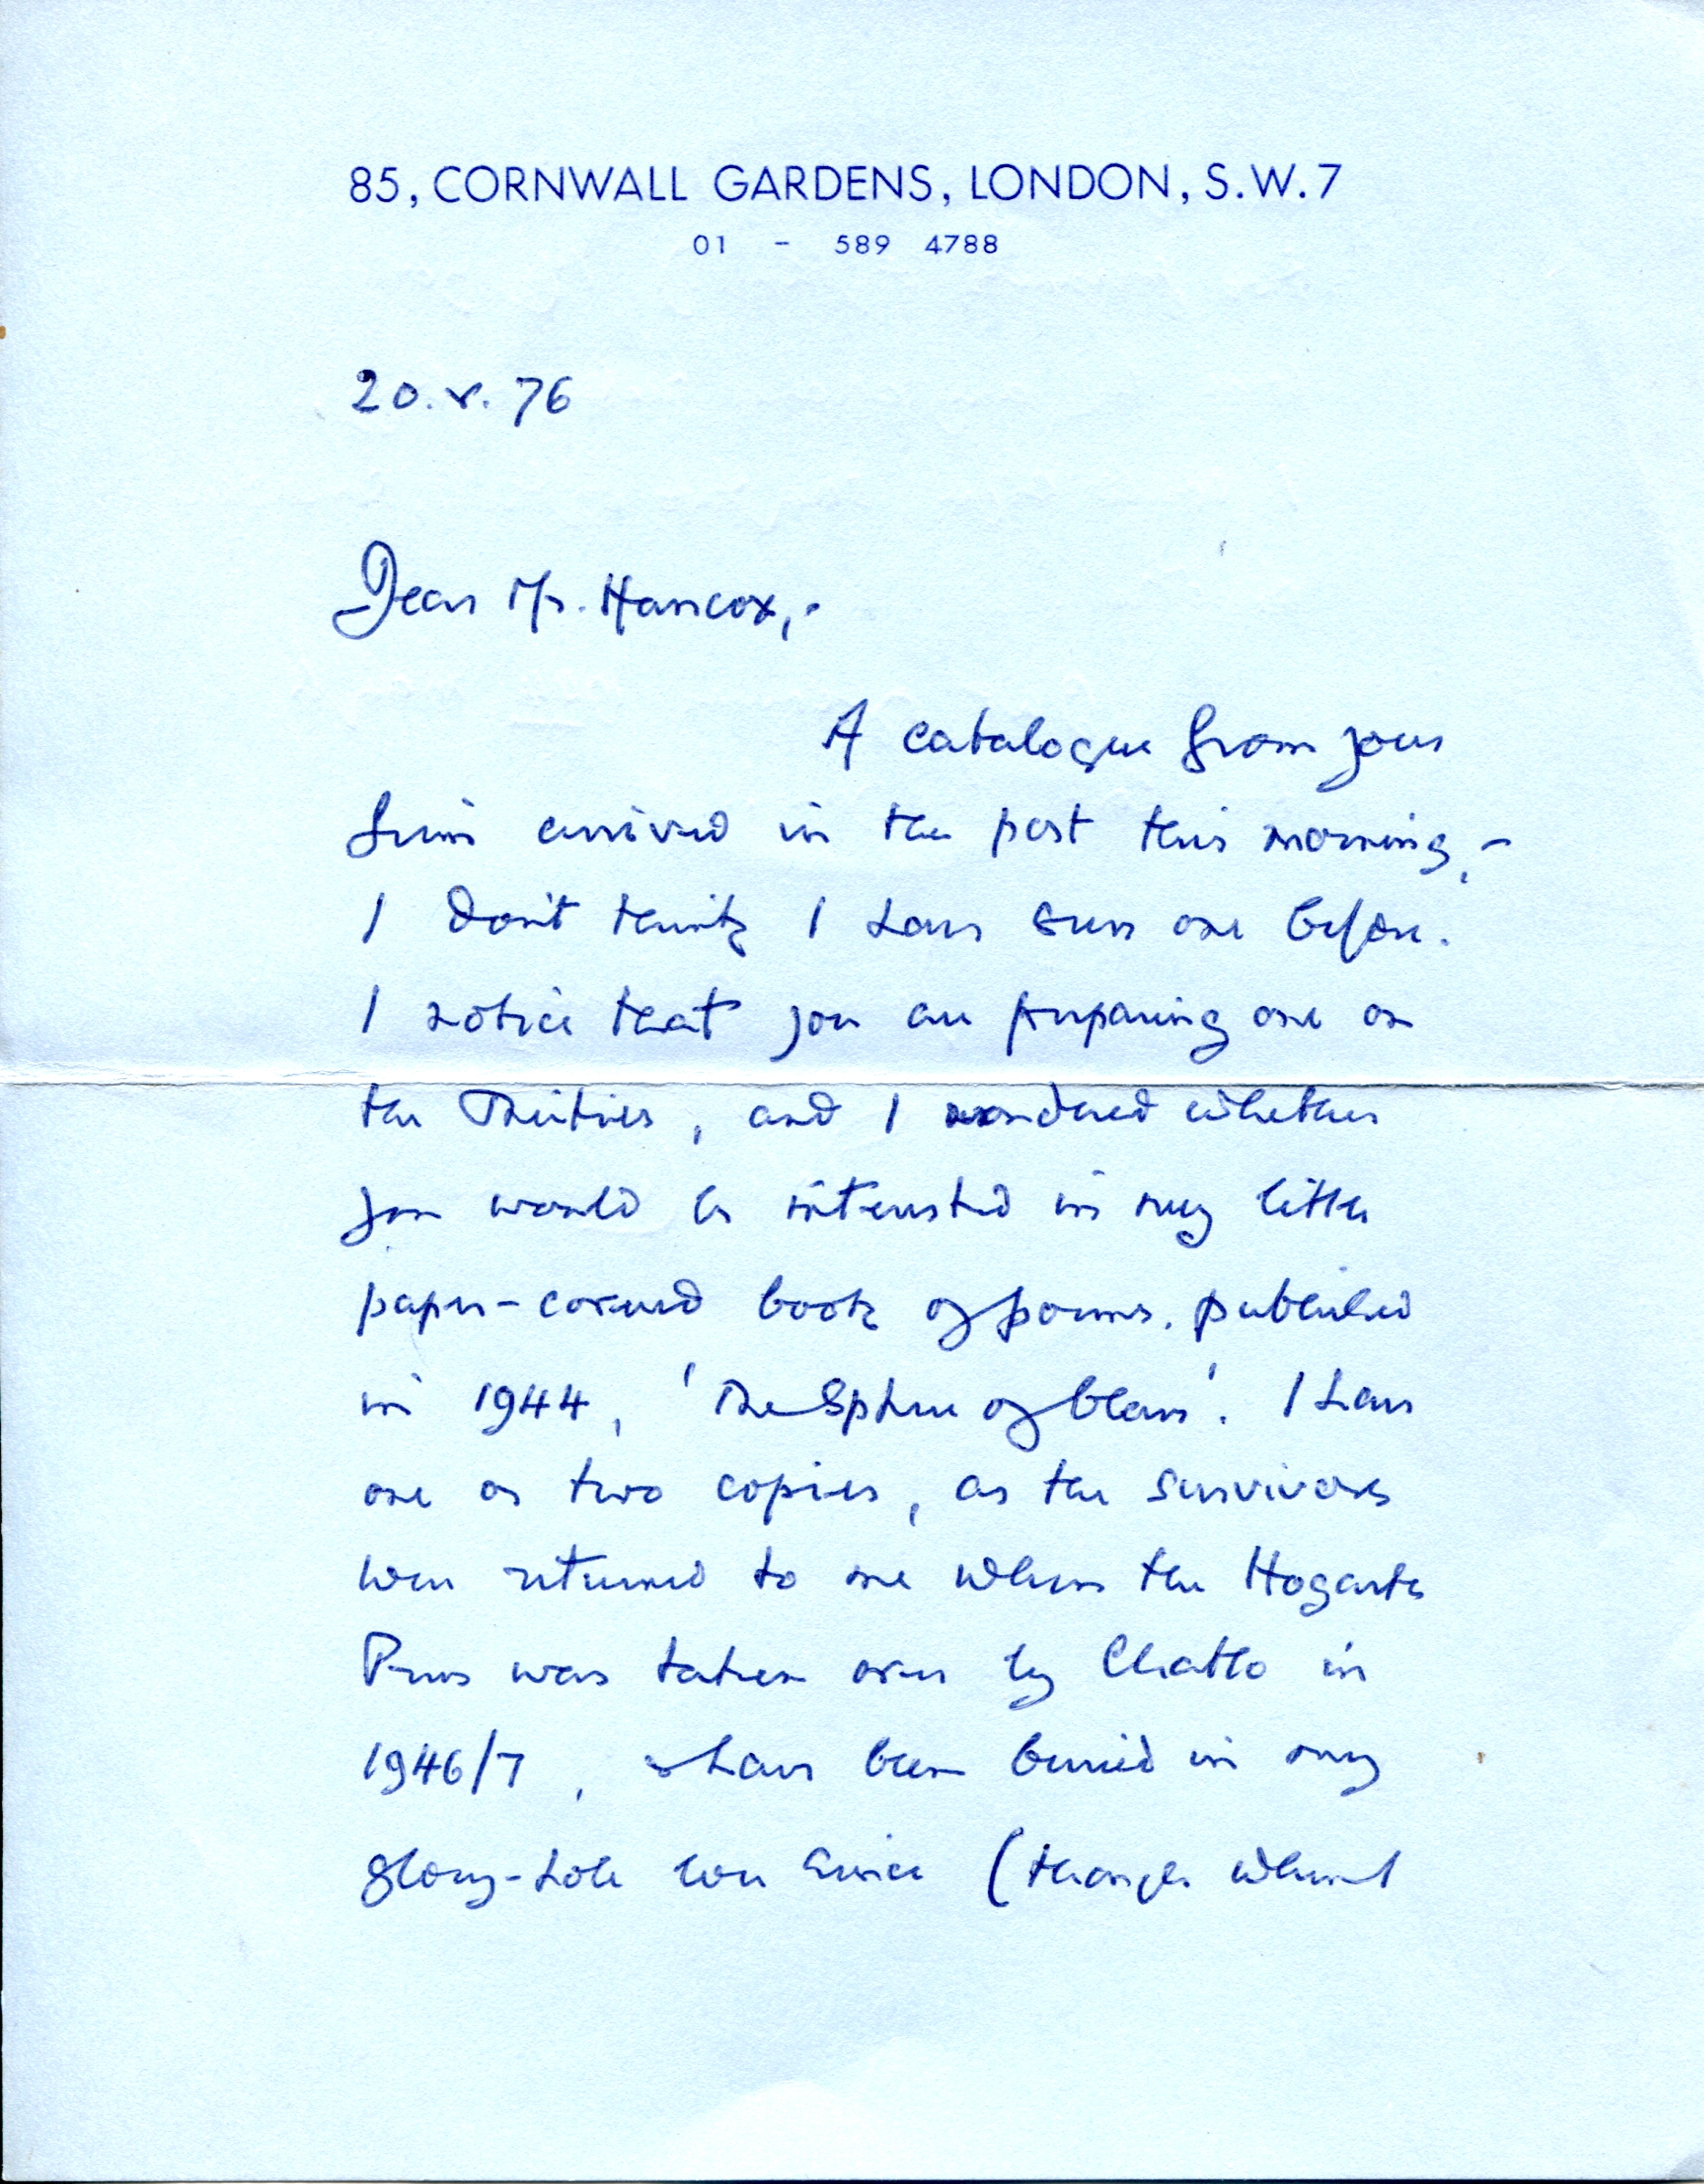 85, CORNWALL GARDENS, LONDON, S.W.7
01 - 589 4788
20.v.76
Dear Mr. Hancox,-
A catalogue from your
firm arrived in the post this morning,-
I don't think I have seen one before.
I notice that you are preparing one on
the Thirties, and I wondered whether
you would be interested in my little
paper-covered book of poems, published
in 1944, 'The Sphere of Glass'. I have
one or two copies, as the survivors
were returned to me when the Hogarth
Press was taken over by Chatto in
1946/7, & have been buried in my
glory-hole here since (though when I